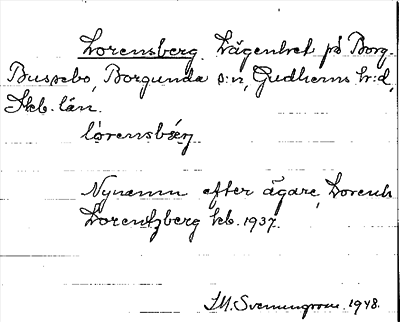 Lorensberg. Lägenhet på Borg.
Bussebo, Borgunda s:n, Gudhems hr:d,
Skb. län.
lòrensbǽrj
Nynamn efter ägare, Lorenh
Lorentzberg kb. 1937.
I.M. Svenungsson. 1948.